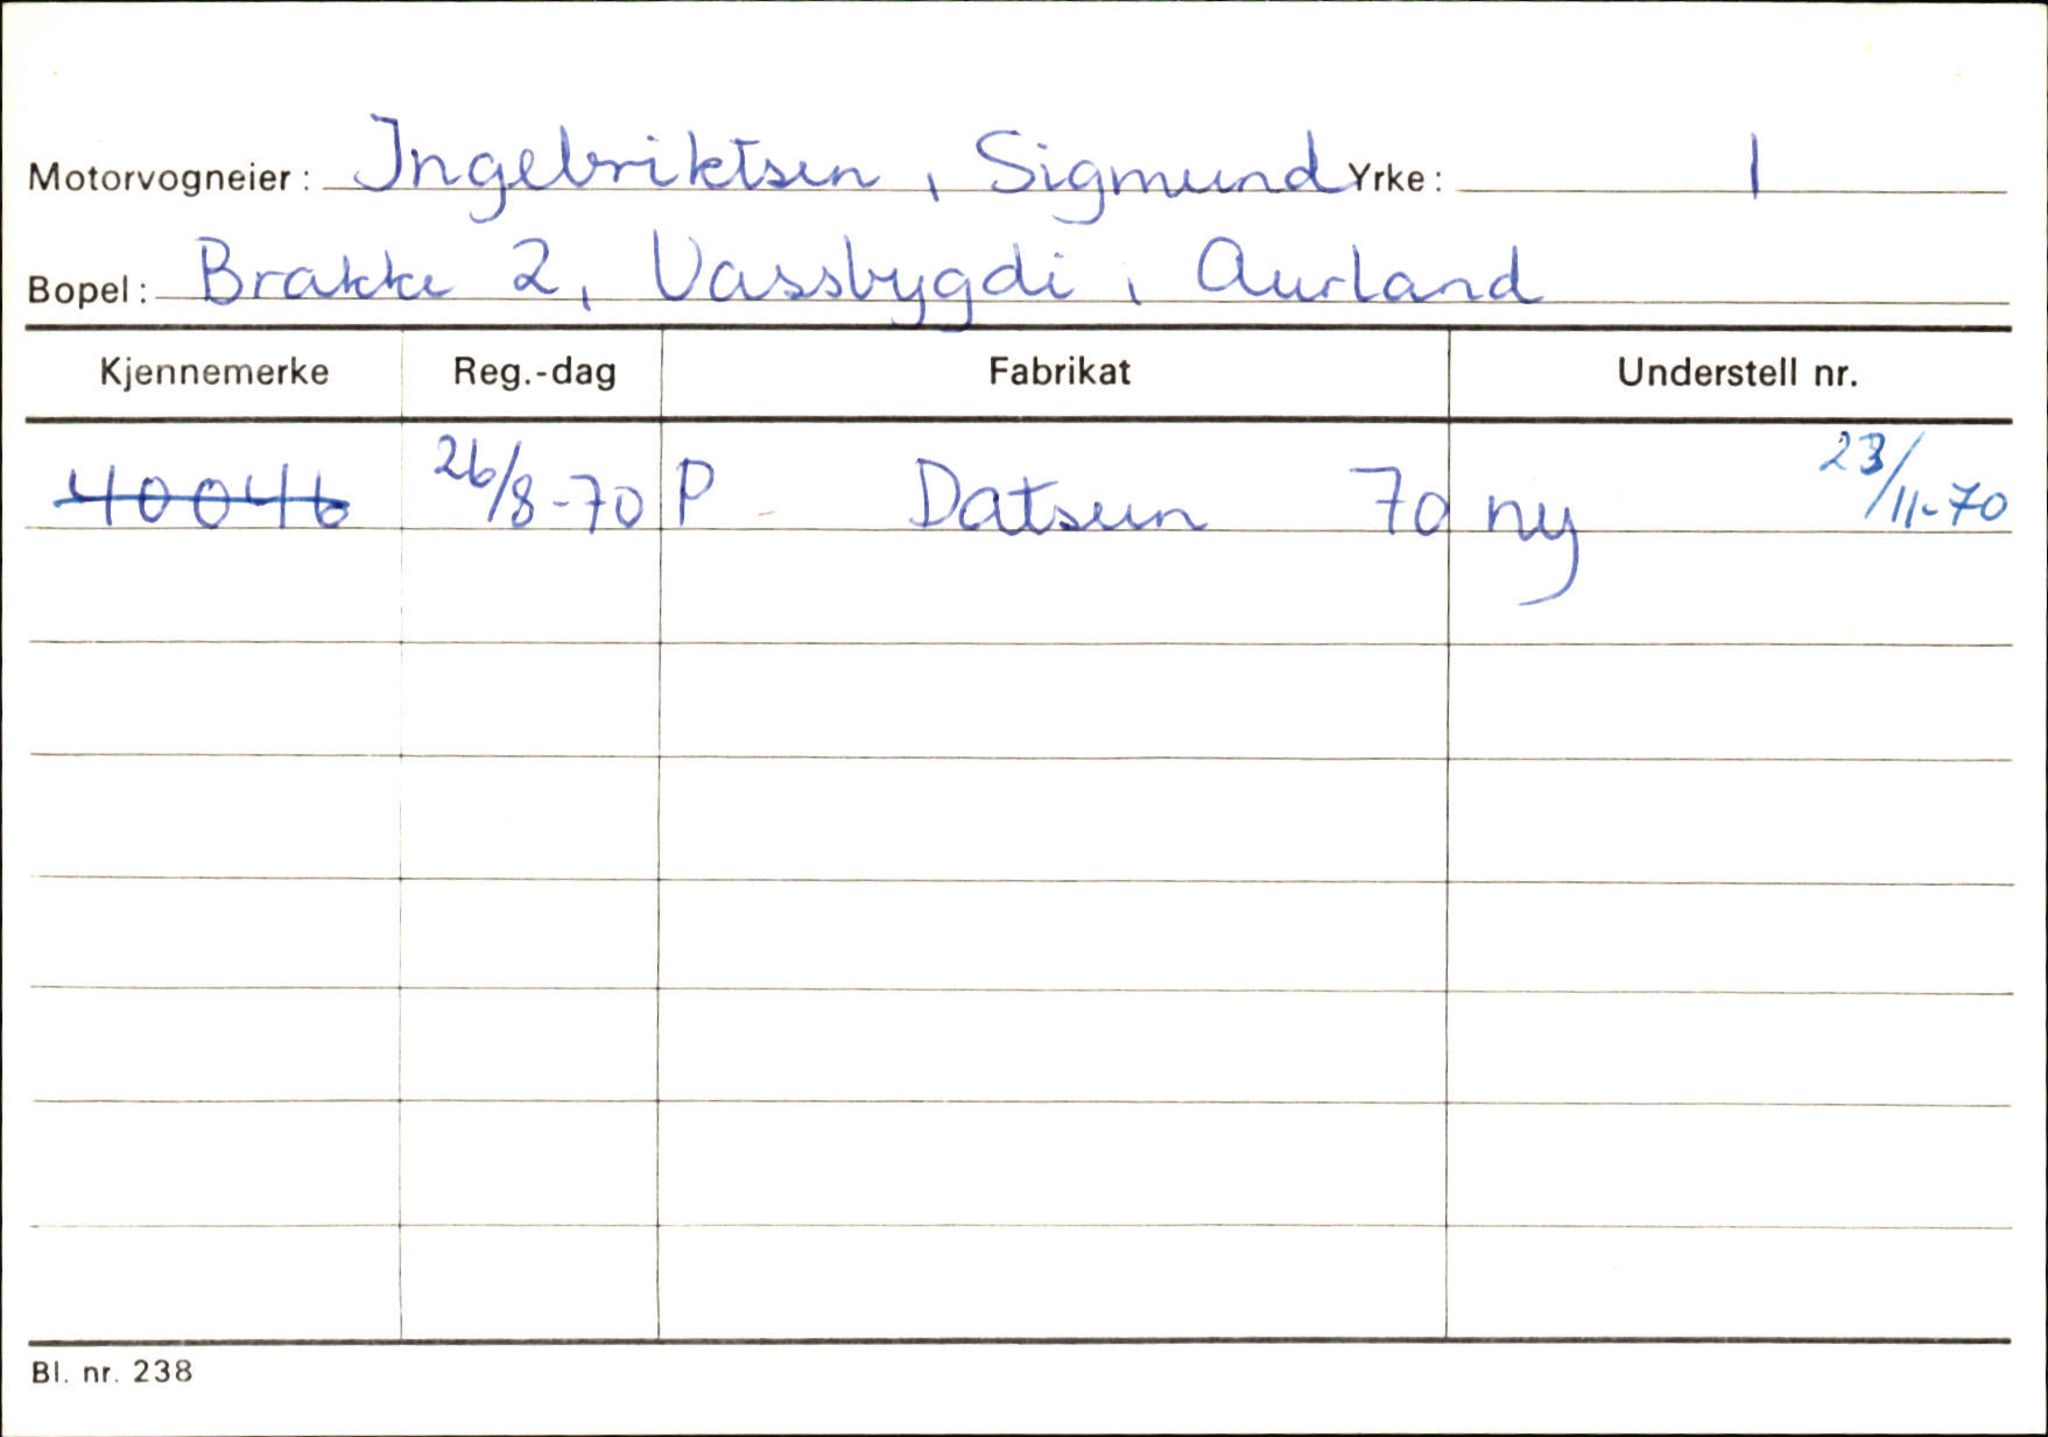 Motorvogneier: Ingebriktsen, Sigmund Yrke: 1
Bopel: Brakke 2, Vassbygdi, Aurland
Kjennemerke Reg.-dag Fabrikat Understell nr.
40046 26/8-70 P Datsun 70 ny 23/11-70
Bl. nr. 238